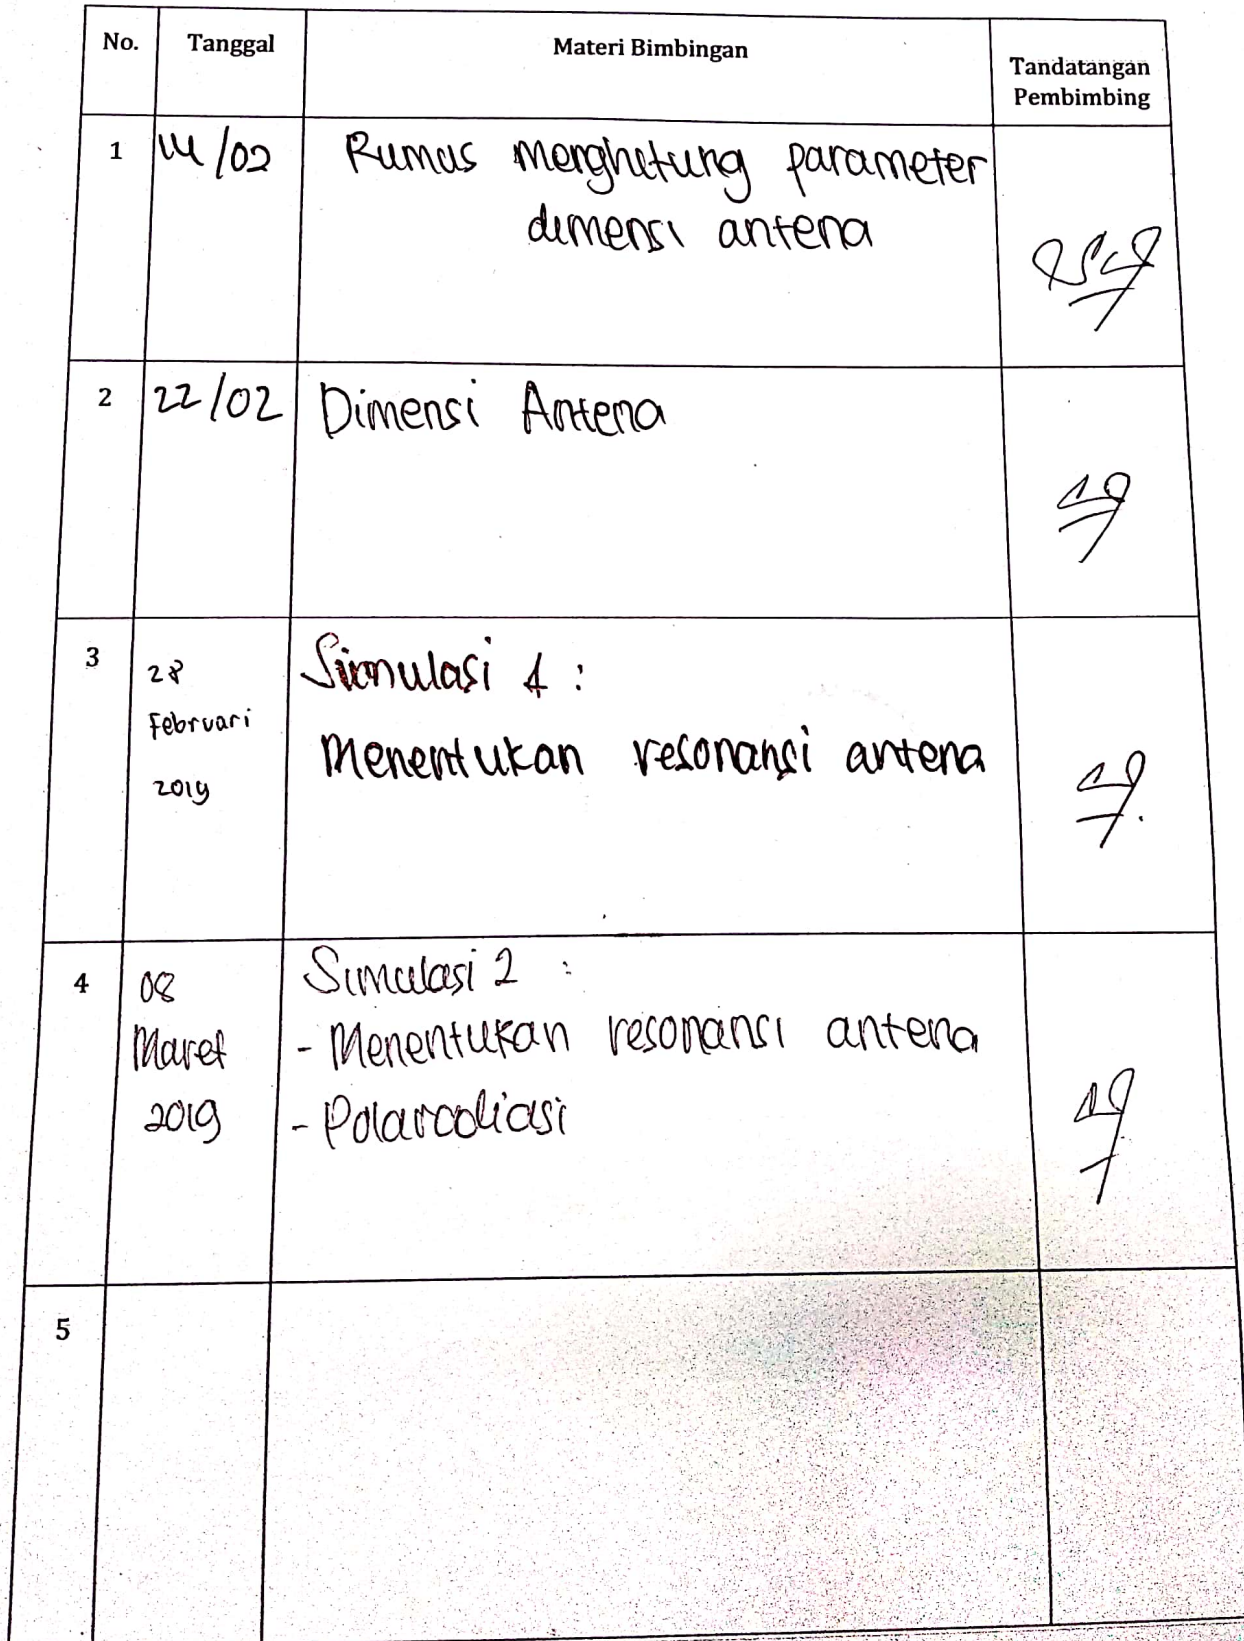 No. Tanggal Materi Bimbingan Tandatangan
Pembimbing
1 14/02 Rumus menghitung parameter
dimensi antena
2 22/02 Dimensi Antena
3 28 Simulasi 1 :
Februari Menentukan resonansi antena
2019
4 08 Simulasi 2 :
Maret - Menentukan resonansi antena
2019 - Polarcoliasi
5